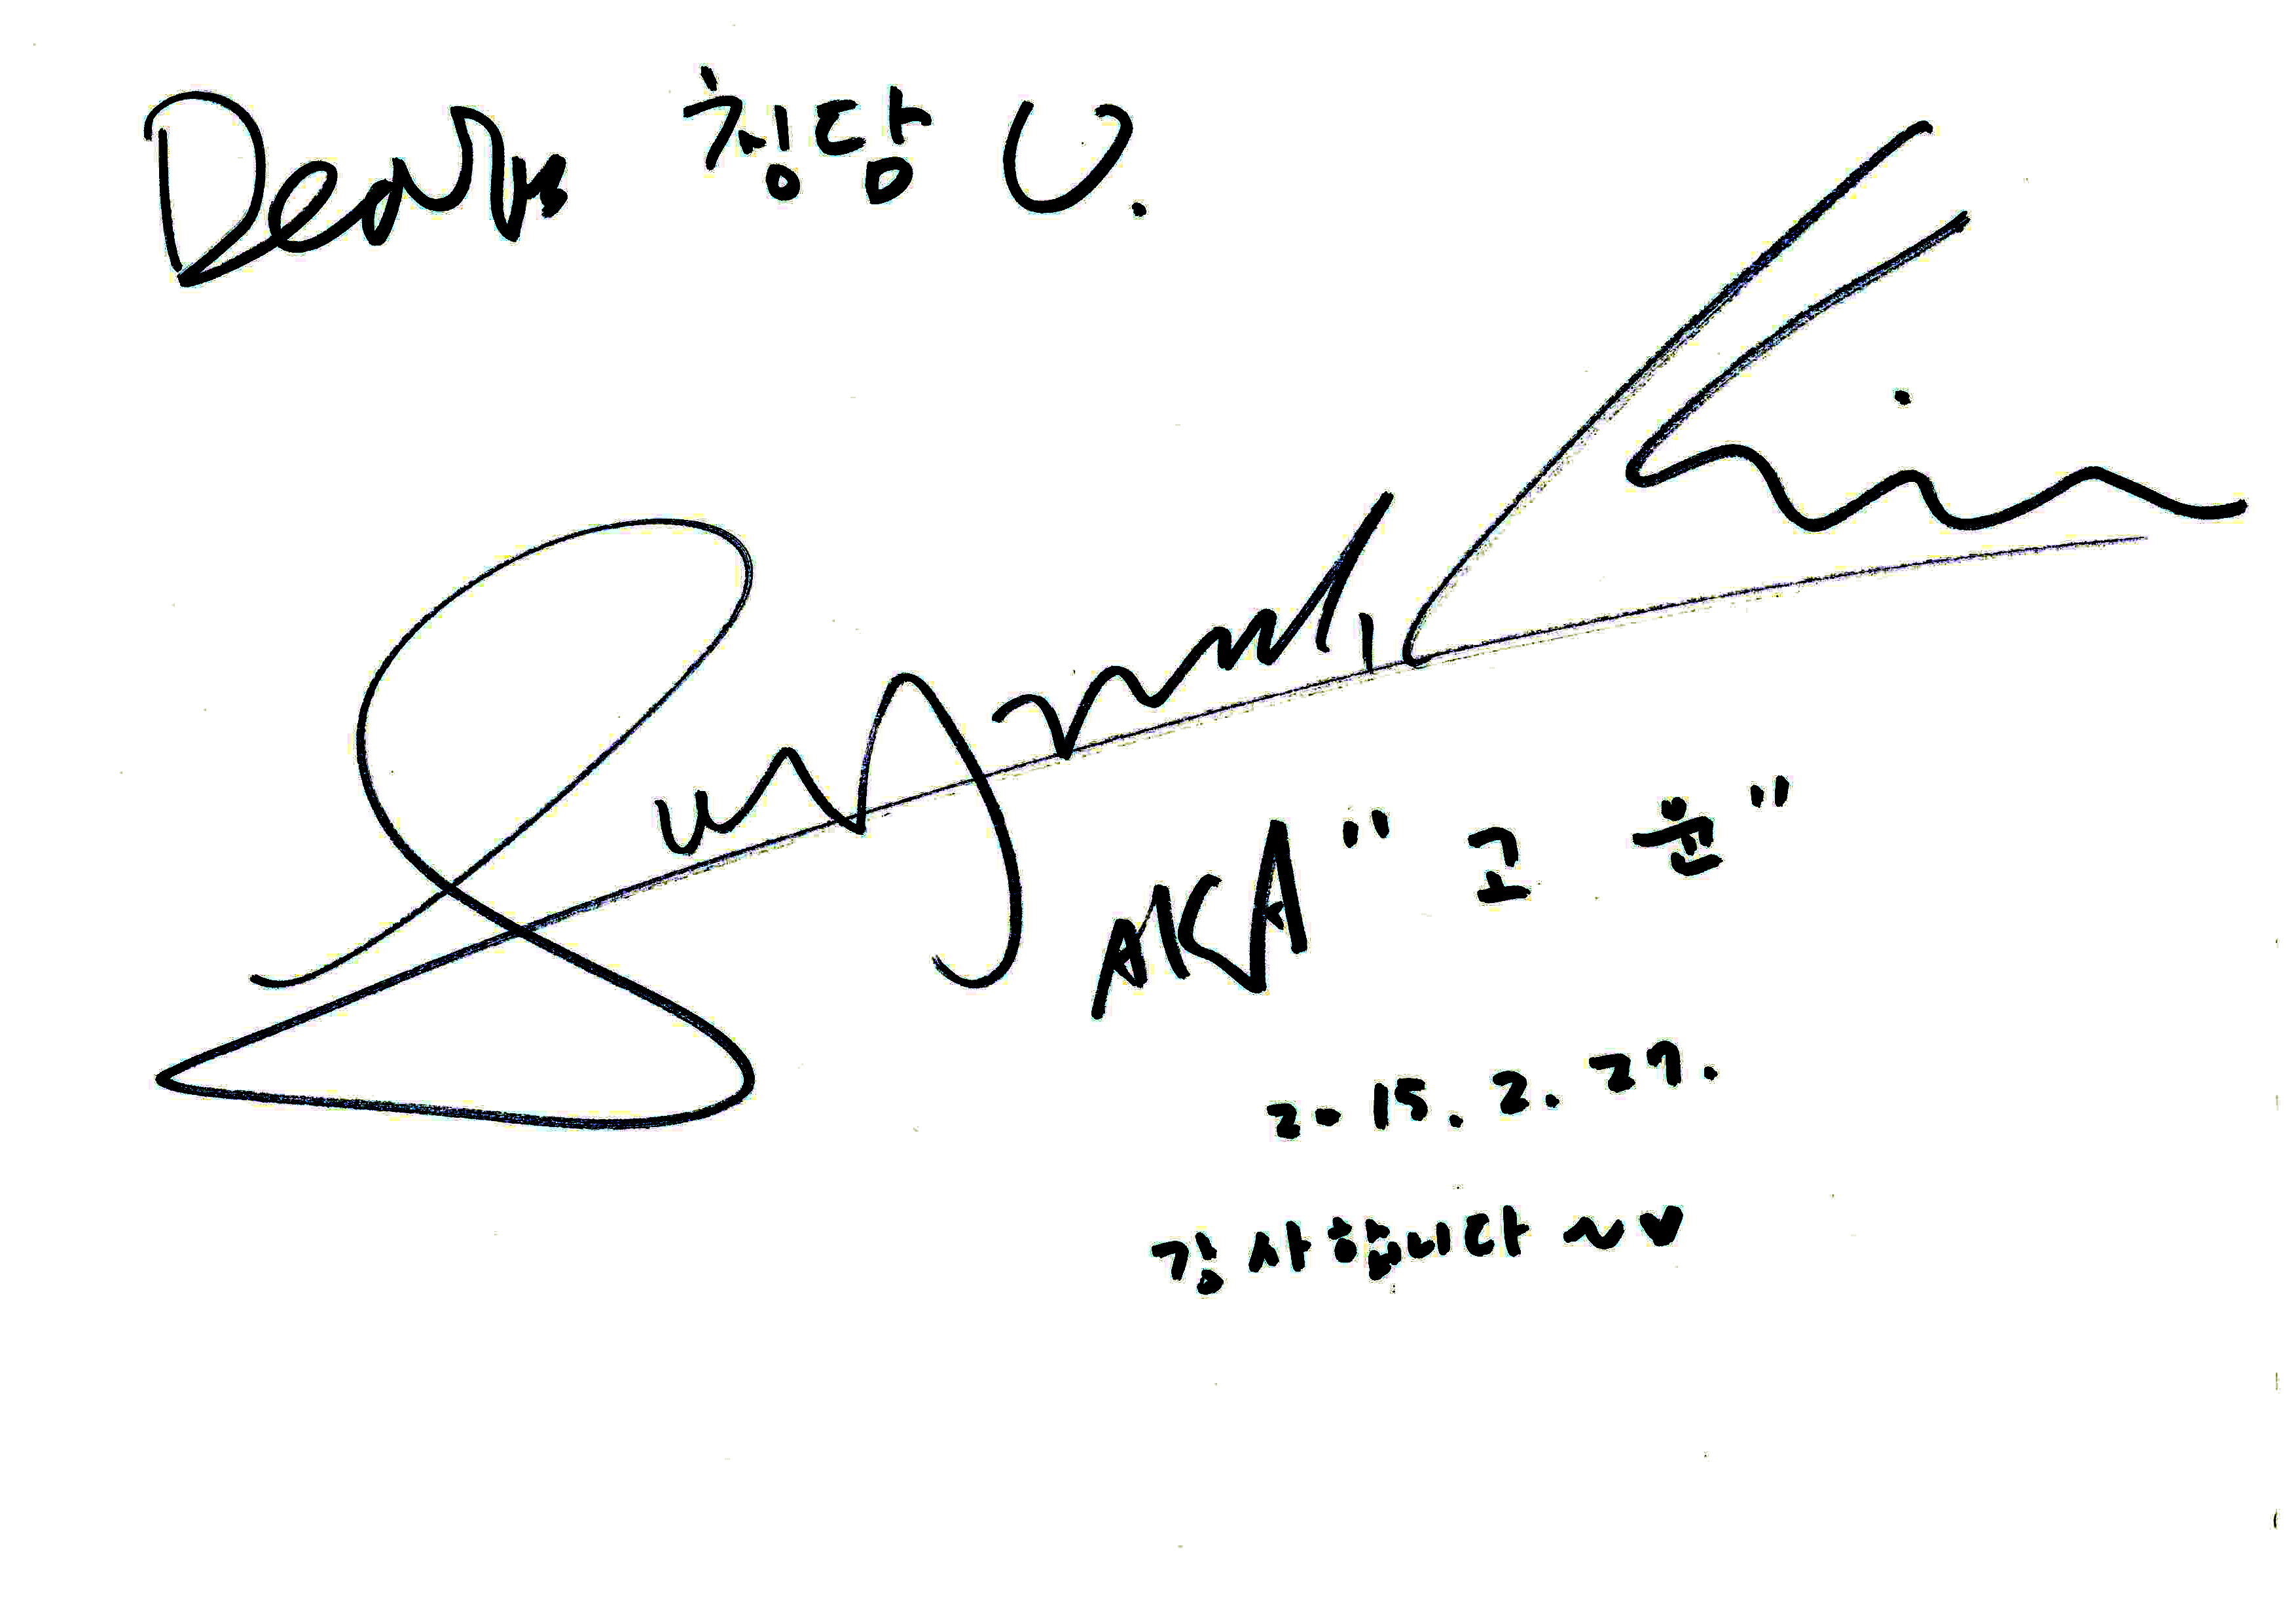 Dear 청담 U.
Kim
AKA "고윤"
2015. 2. 27.
감사합니다 ~♥